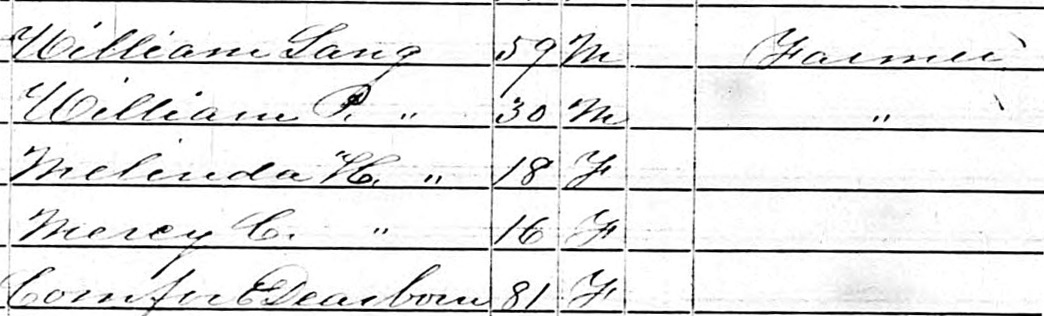 William Lang 59 M Farmer
William P. " 30 M "
Melinda H. " 18 F
Mercy C. " 16 F
Comfort Dearborn 81 F